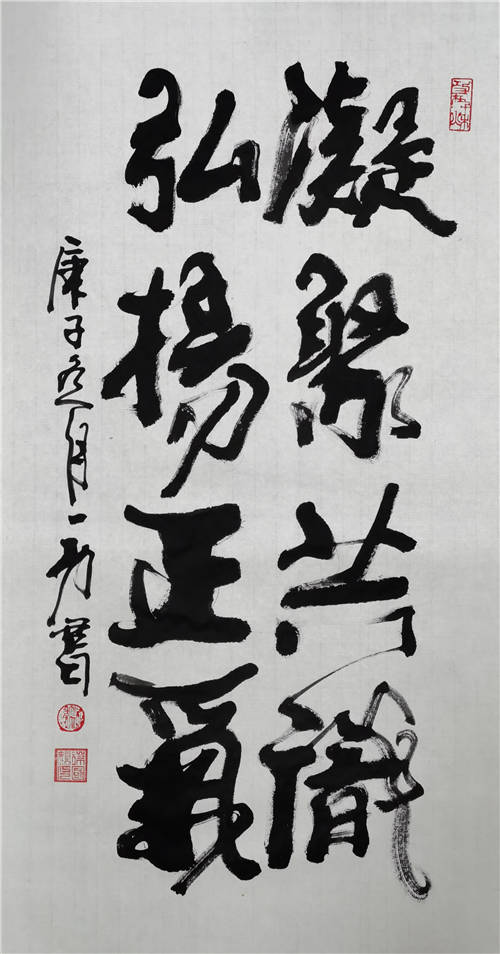 凝聚共識
弘揚正義
庚子月一書